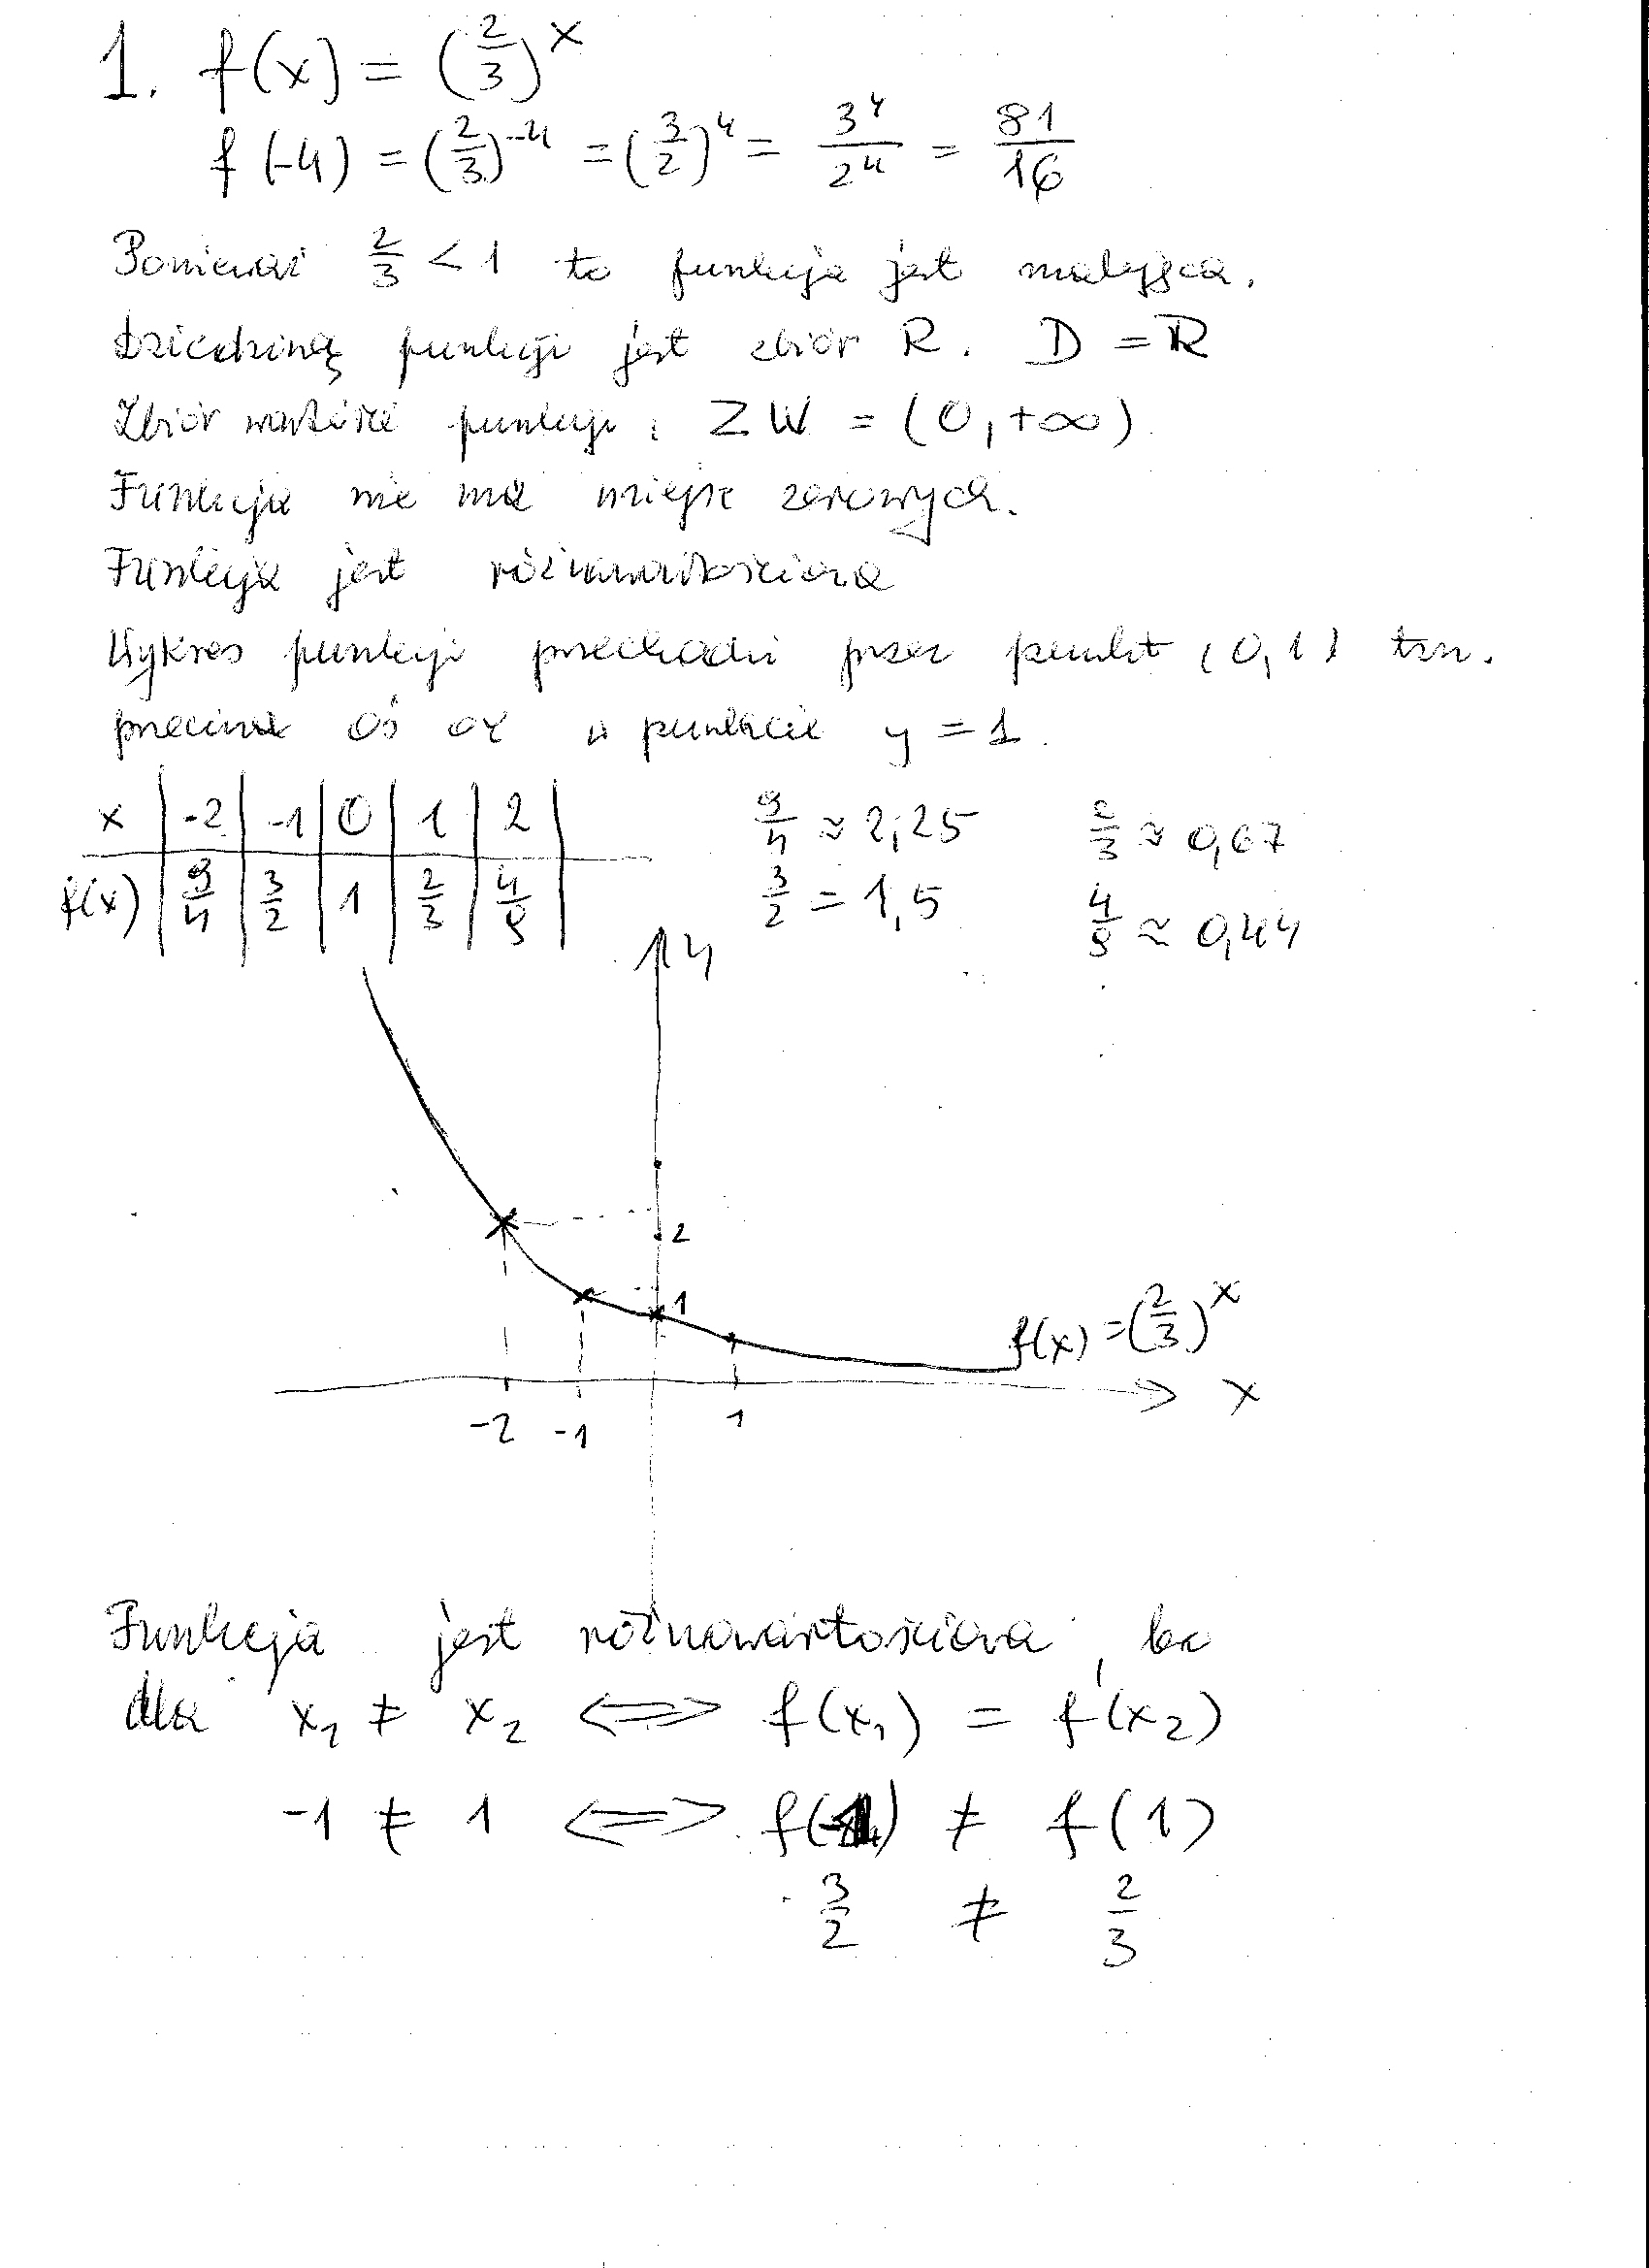 1. f(x) = (2/3)^x
f(-4) = (2/3)^-4 = (3/2)^4 = 3^4/2^4 = 81/16
Ponieważ 2/3 < 1 to funkcja jest malejąca.
Dziedziną funkcji jest zbiór R. D = R
Zbiór wartości funkcji: ZW = (0, +∞)
Funkcja nie ma miejsc zerowych.
Funkcja jest różnowartościowa
Wykres funkcji przechodzi przez punkt (0,1) tzn.
przecina oś OY w punkcie y = 1.
x | -2 | -1 | 0 | 1 | 2 |
f(x) | 9/4 | 3/2 | 1 | 2/3 | 4/9 |
9/4 ≈ 2,25 2/3 ≈ 0,67
3/2 = 1,5 4/9 ≈ 0,44
y
2
1
f(x) = (2/3)^x
x
-2 -1 1
Funkcja jest różnowartościowa, bo
dla x₁ ≠ x₂ <=> f(x₁) = f(x₂)
-1 ≠ 1 <=> f(-1) ≠ f(1)
3/2 ≠ 2/3